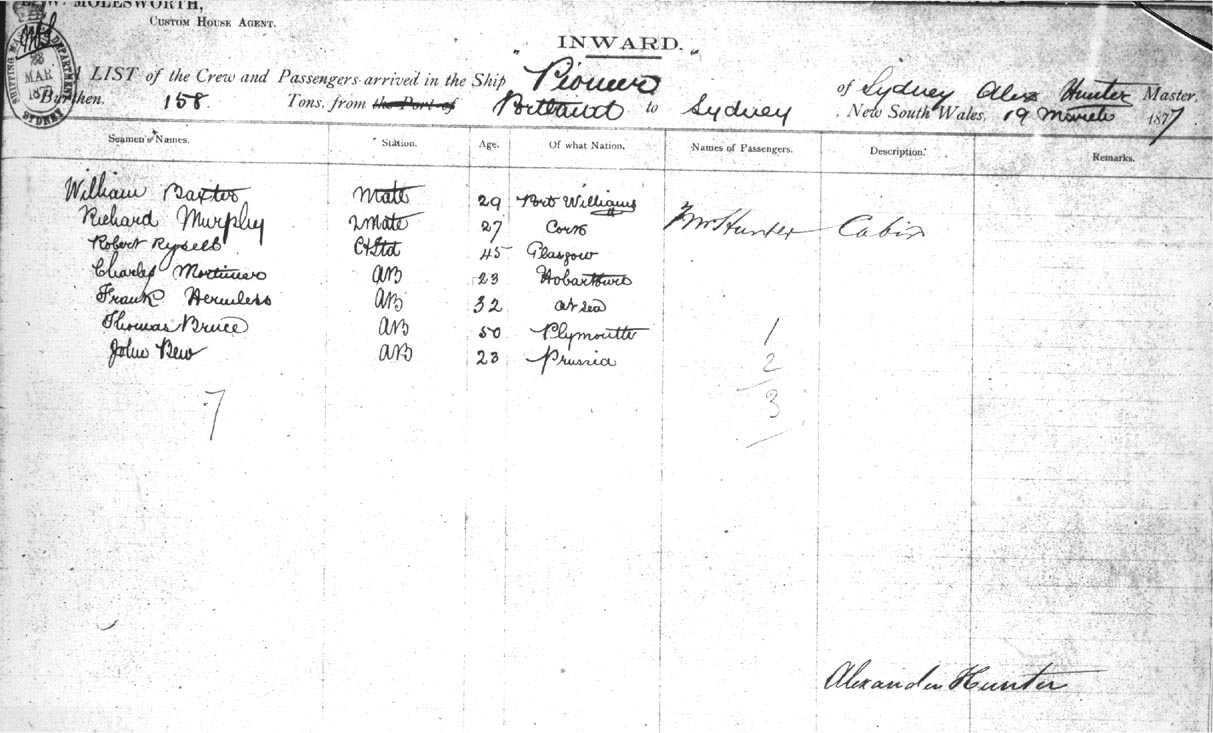 W. MOLESWORTH,
CUSTOM HOUSE AGENT.
SHIPPING MA DEPARTMENT
MAR
187
SYDNEY
„ INWARD. „
LIST of the Crew and Passengers arrived in the Ship Pioneer of Sydney Alex Hunter Master,
Burthen. 158 Tons, from the Port of Portland to Sydney . New South Wales, 19 March 1877
Seamen's Names. Station. Age. Of what Nation. Names of Passengers. Description. Remarks.
William Baxter Mate 29 Port Williams
Richard Murphy 2 Mate 27 Cork Mr Hunter Cabin
Robert Rysells C & Std 45 Glasgow
Charles Mortimer AB 23 Hobart
Frank Hermless AB 32 at sea
Thomas Bruce AB 50 Plymouth 1
John Bew AB 23 Prussia 2
7 3
Alexander Hunter